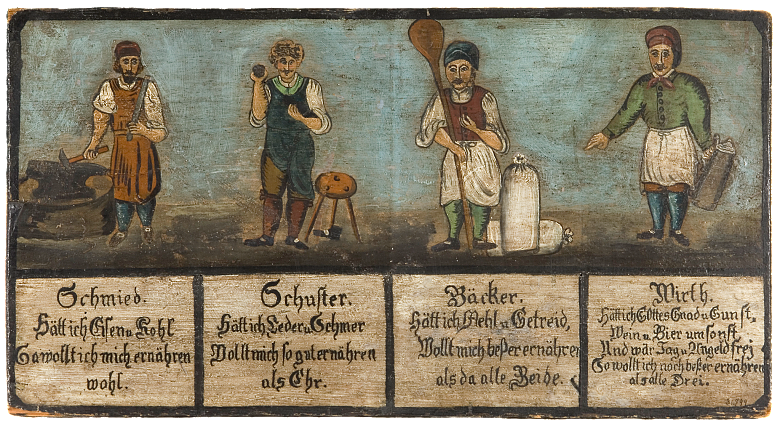 Schmied.
Hätt ich Eisen u. Kohl
So wollt ich mich ernähren
wohl.
Schuster.
Hätt ich Leder u. Schmer
Wollt mich so gut ernähren
als Ehr.
Bäcker.
Hätt ich Mehl u. Getreid,
Wollt mich beßer ernähren
als da alle Beide.
Wirth.
Hätt ich Gottes Gnad u. Gunst,
Wein u. Bier umsonst
Und wär Zag u. Angeld frei
So wollt ich noch beßer ernähren
als alle Drei.